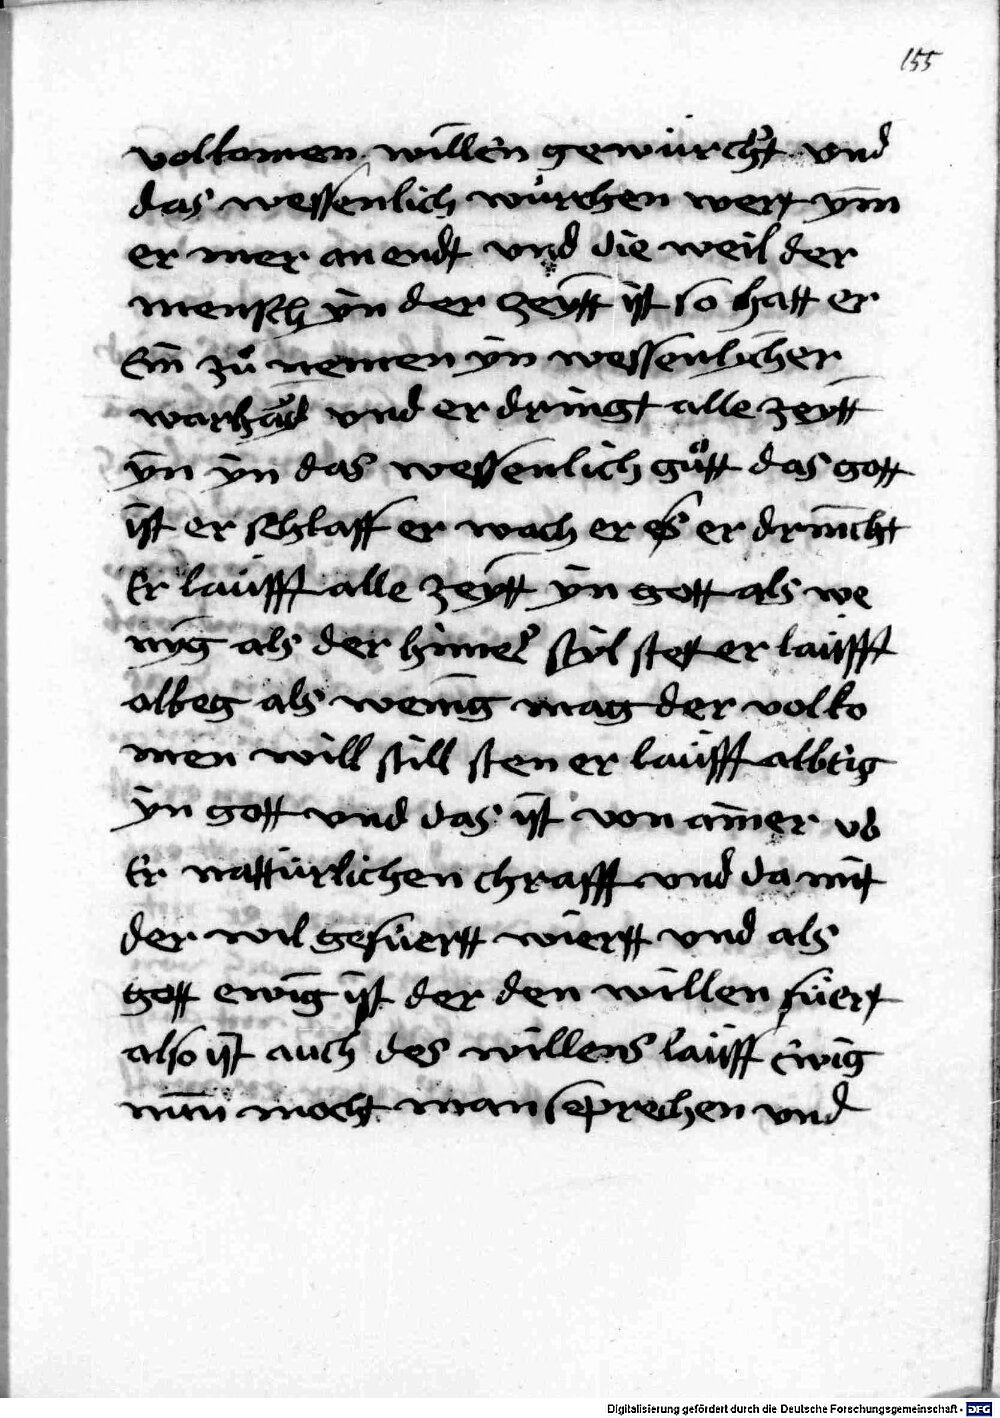 155
volkomen willen gewürcht und
das wessenlich würchen wert ym
er mer an endt und die weil der
mensch yn der zeytt ist so hatt er
Ein zů nemen yn wessenlicher
warhayd und er dringt alle zeytt
yn yn das wessenlich gůtt das gott
ist er schlaff er wach er es er drincht
Er laüfft alle zeytt yn gott als we
nyg als der himel styl stet er laüfft
albeg als wenig mag der volko
men will still sten er laüfft albeig
yn gott und das ist von ainer ub
Er nattürlichen chrafft und da mit
der wil gefüertt wiertt und als
gott ewig ist der den willen füert
also ist auch des willens laüff ewig
nun mocht man seprechen und
Digitalisierung gefördert durch die Deutsche Forschungsgemeinschaft - DFG